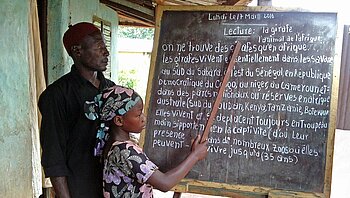 Lundi Le 14 Mars 2016
Lecture: la girafe
l'animal de l'afrique
on ne trouve des girafes qu'en afrique.
les girafes vivent essentiellement dans les Sava
au Sud du Sahara, l'est du Sénégal, en Republique
Democratique du Congo, du Niger au Cameroun et
dans parcs nationaux ou réserves en Afrique
australe (Sud du Soudan, Kenya, Tanzanie, Botswana
Elles vivent et se déplacent toujours en Troupeau
moins supportent la captivité (d'où leur
presence dans de nombreux zoos où elles
peuvent vivre jusqu'à (35 ans)